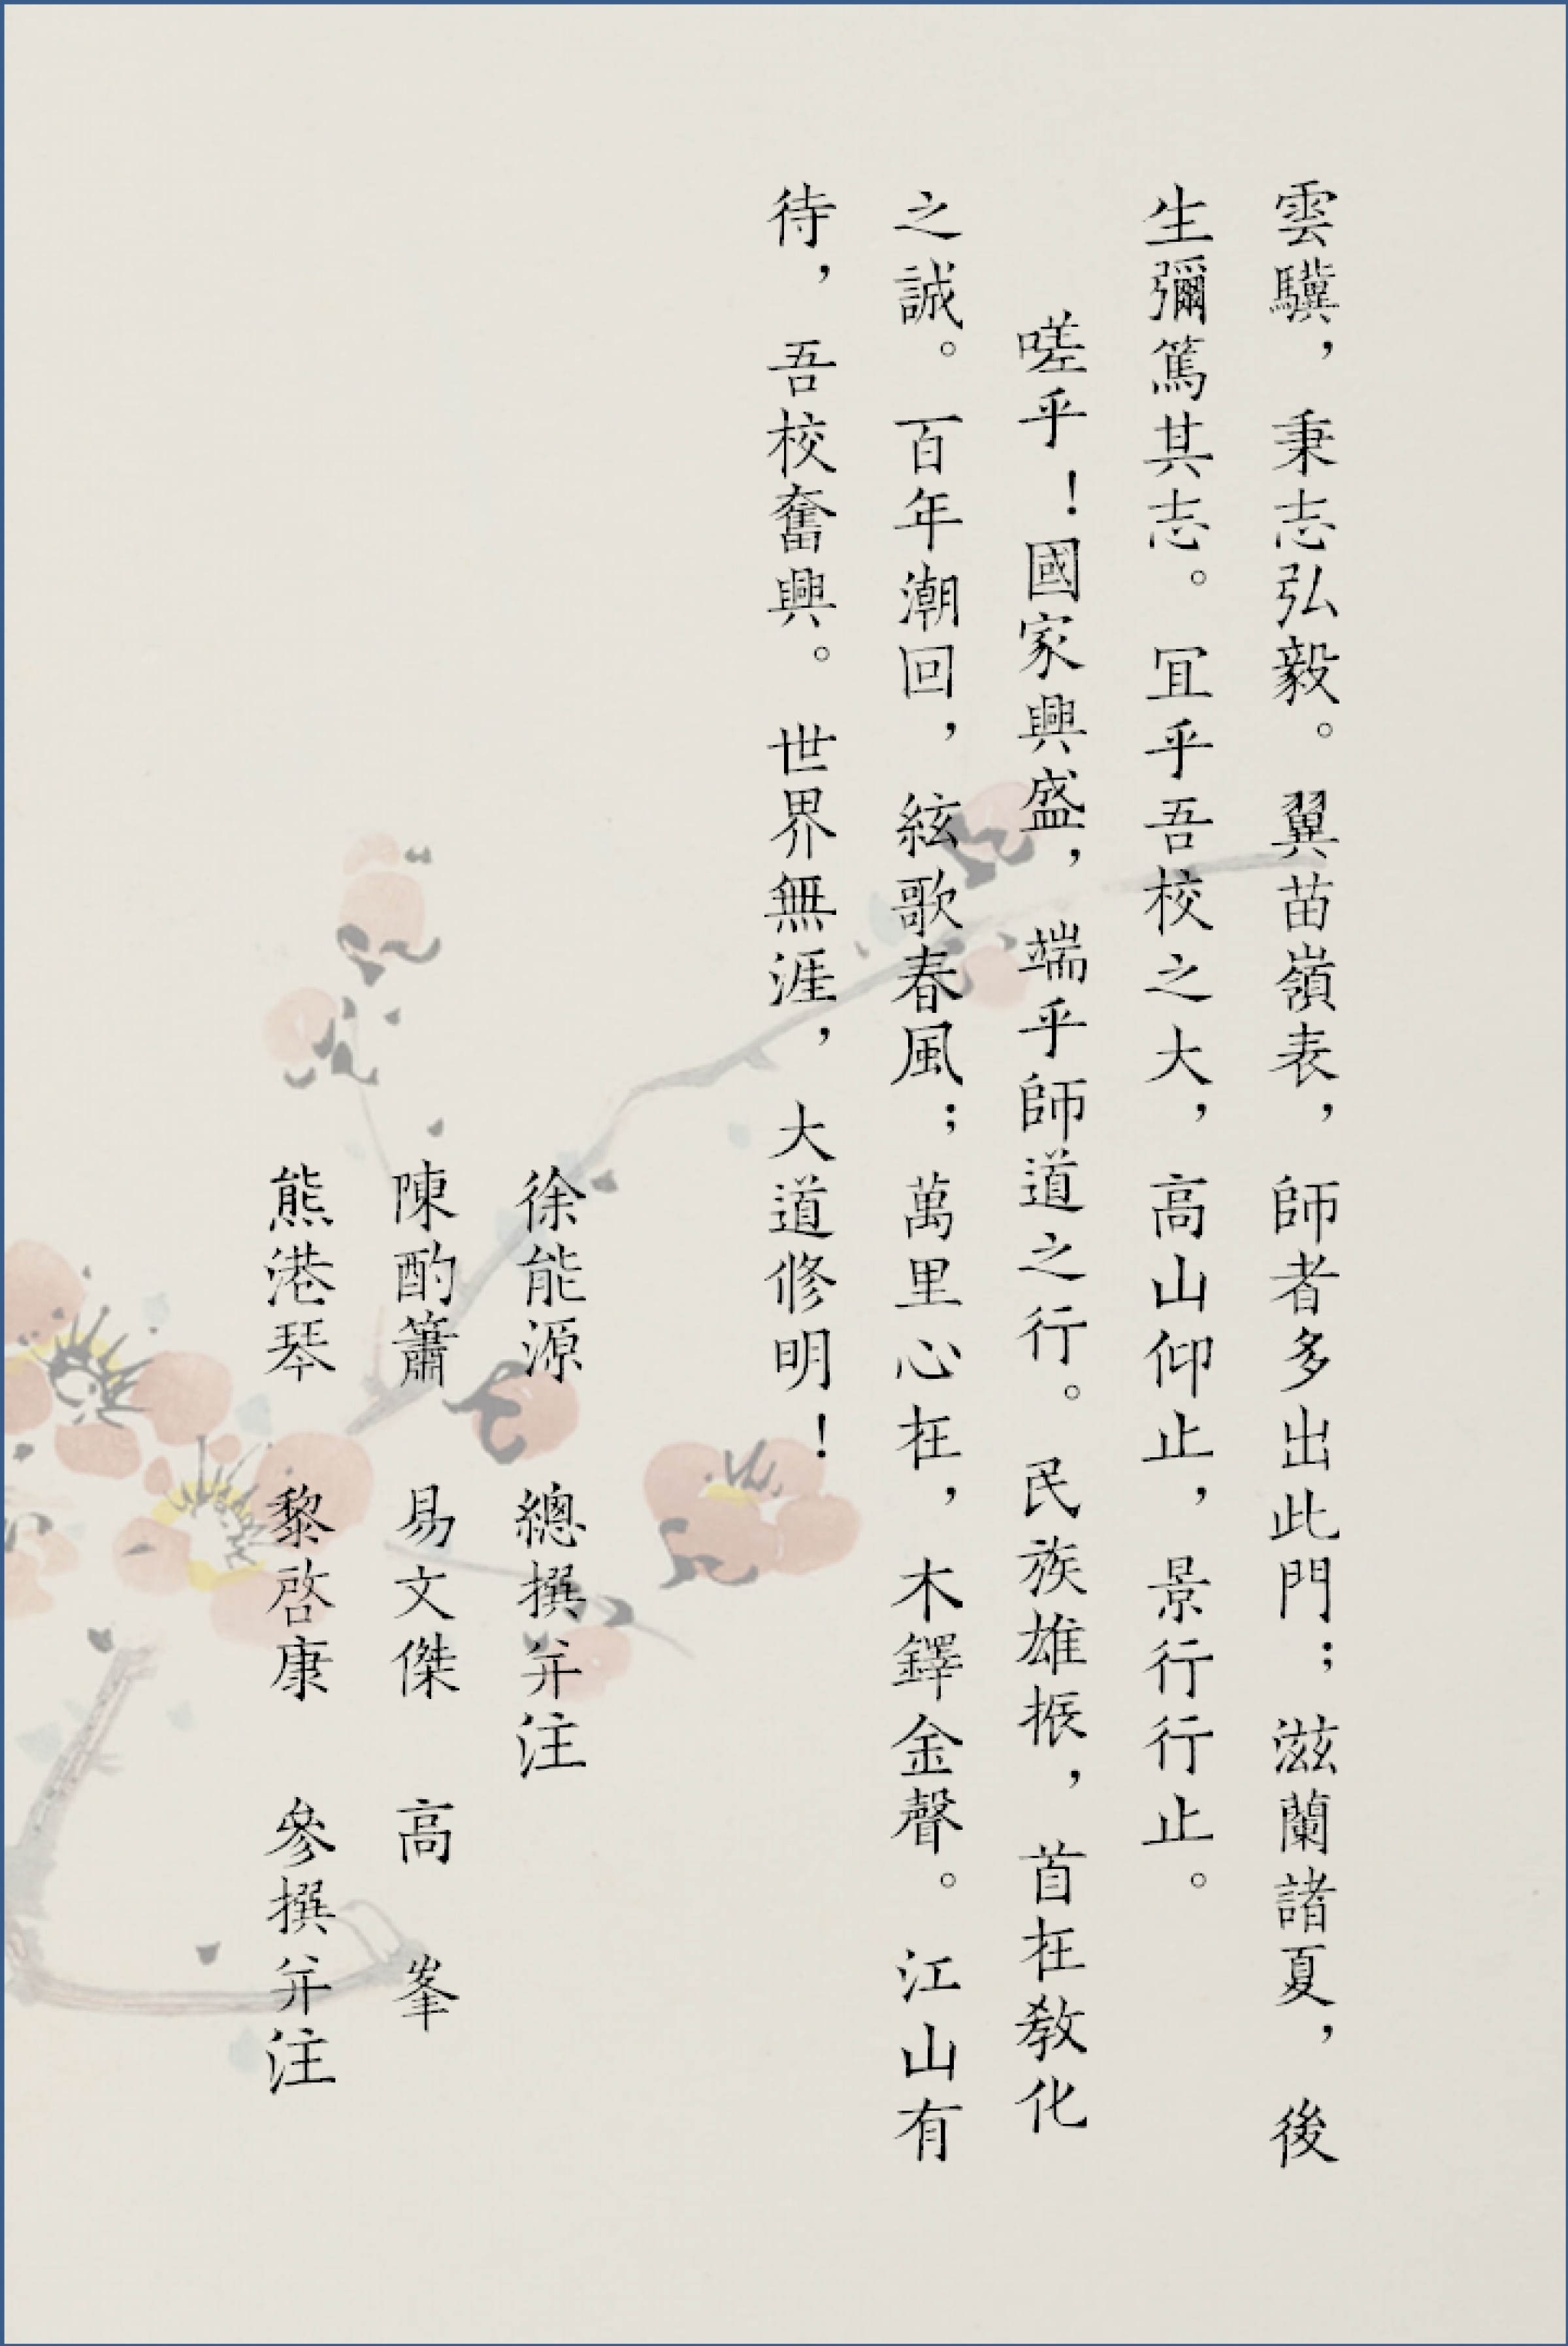 雲驥，秉志弘毅。翼苗嶺表，師者多出此門；滋蘭諸夏，後
生彌篤其志。冝乎吾校之大，高山仰止，景行行止。
嗟乎！國家興盛，端乎師道之行。民族雄振，首在敎化
之誠。百年潮回，絃歌春風；萬里心在，木鐸金聲。江山有
待，吾校奮興。世界無涯，大道修明！
徐能源　總撰并注
陳酌簫　易文傑　高　峯
熊港琴　黎啓康　參撰并注